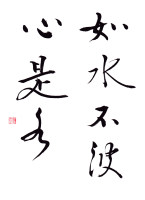 如水不波
心是